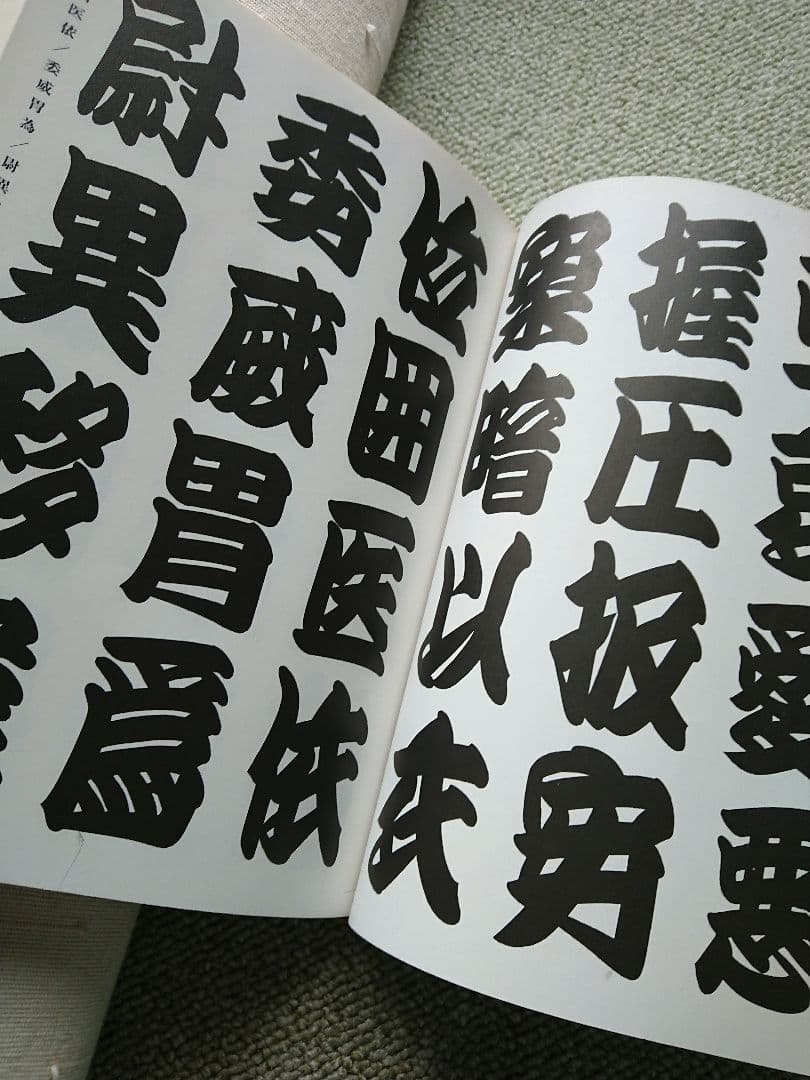 愛悪
握圧扱安
案暗以衣
位囲医依
委威胃為
尉異移
医依/委威胃為/尉異